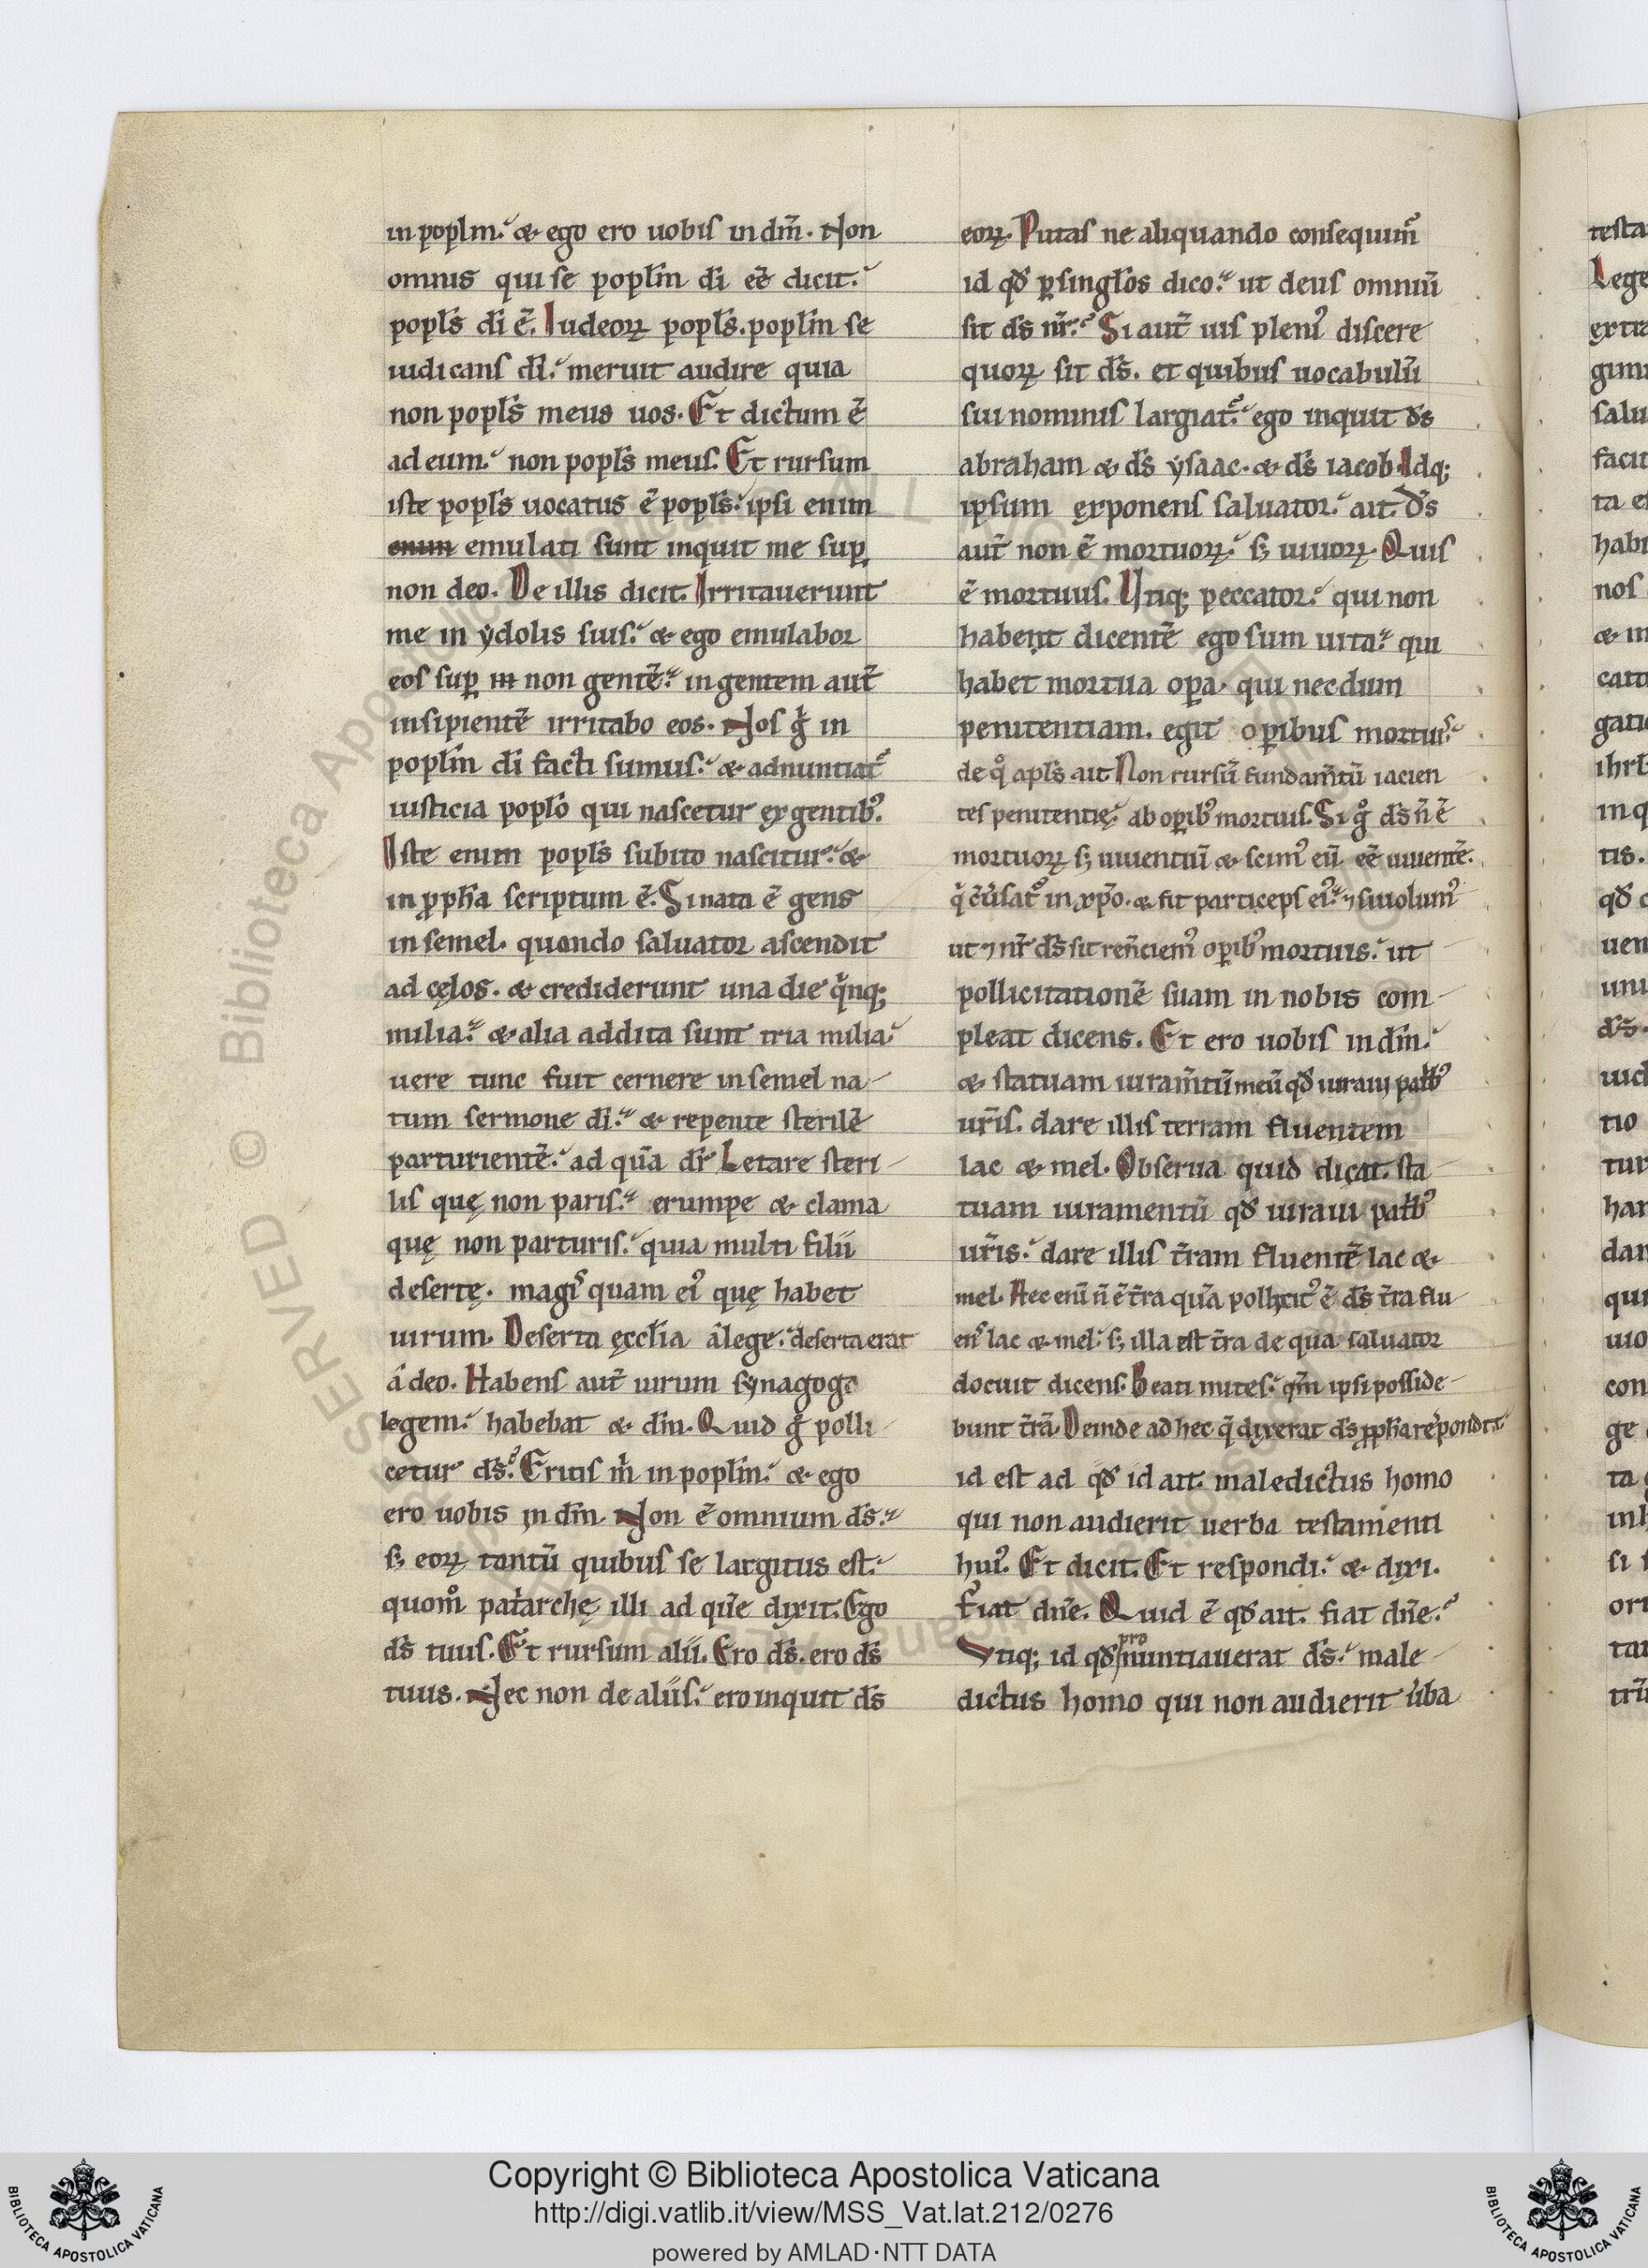 in poplm. & ego ero uobis in dm̄. Non
omnis qui se popłm di eē dicit.
popłs di ē. Iudeoꝝ popłs. popłm se
iudicans di. meruit audire quia
non popłs meus uos. Et dictum ē
ad eum. non popłs meus. Et rursum
iste popłs uocatus ē popłs. ipsi enim
enim emulati sunt inquit me suꝑ
non deo. De illis dicit. Irritauerunt
me in ydolis suis. & ego emulabor
eos suꝑ in non gentē. in gentem aut̄
insipientē irritabo eos. Nos g̊ in
popłm di facti sumus. & adnuntiat᷑
iusticia popło qui nascetur ex gentibꝰ.
Iste enim popłs subito nascitur. &
in ꝓpħa scriptum ē. Si nata ē gens
in semel. quando saluator ascendit
ad cęlos. & crediderunt una die q̇nqꝫ
milia. & alia addita sunt tria milia.
uere tunc fuit cernere in semel na-
tum sermone di. & repente sterilē
parturientē. ad quā dr̄ Letare steri-
lis quę non paris. erumpe & clama
quę non parturis. quia multi filii
desertę. magis quam eiꝰ quę habet
uirum. Deserta ęccłia a lege. deserta erat
a deo. Habens aut̄ uirum synagoga
legem. habebat & dm̄. Quid g̊ polli
cetur ds̄. Eritis m̍ in popłm. & ego
ero uobis in dm̄. Non ē omnium ds̄.
sꝫ eoꝝ tantū quibus se largitus est.
quom̊ pat̍archę illi ad quē dixit. Ego
ds̄ tuus. Et rursum alii. Ero ds̄. ero ds̄
tuus. Nec non de aliis. ero inquit ds̄
eoꝝ. Putas ne aliquando consequim᷑
id qđ ꝑ singłos dico. ut deus omniū
sit ds̄ nr̄. Si aut̄ uis pleniꝰ discere
quoꝝ sit ds̄. et quibus uocabulū
sui nominis largiat᷑. ego inquit ds̄
abraham & ds̄ ysaac. & ds̄ iacob. Idqꝫ
ipsum exponens saluator. ait. Ds̄
aut̄ non ē mortuoꝝ. sꝫ uiuoꝝ. Quis
ē mortuus. Utiqꝫ peccator. qui non
habent dicentē ego sum uita. qui
habet mortua oꝑa. qui necdum
penitentiam. egit oꝑibus mortuis.
de q̊ apłs ait Non rursū fundam̄tū iacien
tes penitentię. ab oꝑibꝰ mortuis. Si g̊ ds̄ n̄ ē
mortuoꝝ sꝫ uiuentiū & scimꝰ eū eē uiuentē.
q̇ cūsat᷑ in xp̄o. & fit particeps eiꝰ. ⁊ si uolumꝰ
ut ⁊ nr̄ ds̄ sit ren̄ciemꝰ oꝑibꝰ mortuis. ut
pollicitationē suam in nobis com-
pleat dicens. Et ero uobis in dm̄.
& statuam iuram̄tū meū qđ iuraui pat̍bꝰ
ur̄is. dare illis terram fluentem
lac & mel. Obserua quid dicat. sta-
tuam iuramentū qđ iuraui pat̍bꝰ
ur̄is. dare illis t̄ram fluentē lac &
mel. Hec eni n̄ ē t̄ra quā pollicitꝰ ē ds̄ t̄ra flu-
ens lac & mel. sꝫ illa est t̄ra de qua saluator
docuit dicens. Beati mites. qm̄ ipsi posside-
bunt t̄rā. Deinde ad hec q̄ dixerat ds̄ ꝓpħa respondit
id est ad qđ id ait. maledictus homo
qui non audierit uerba testamenti
huiꝰ. Et dicit. Et respondi. & dixi.
fiat dn̄e. Quid ē qđ ait. fiat dn̄e.
Utiqꝫ id qđ pronuntiauerat ds̄. male-
dictus homo qui non audierit u̍ba
Copyright © Biblioteca Apostolica Vaticana
http://digi.vatlib.it/view/MSS_Vat.lat.212/0276
powered by AMLAD·NTT DATA